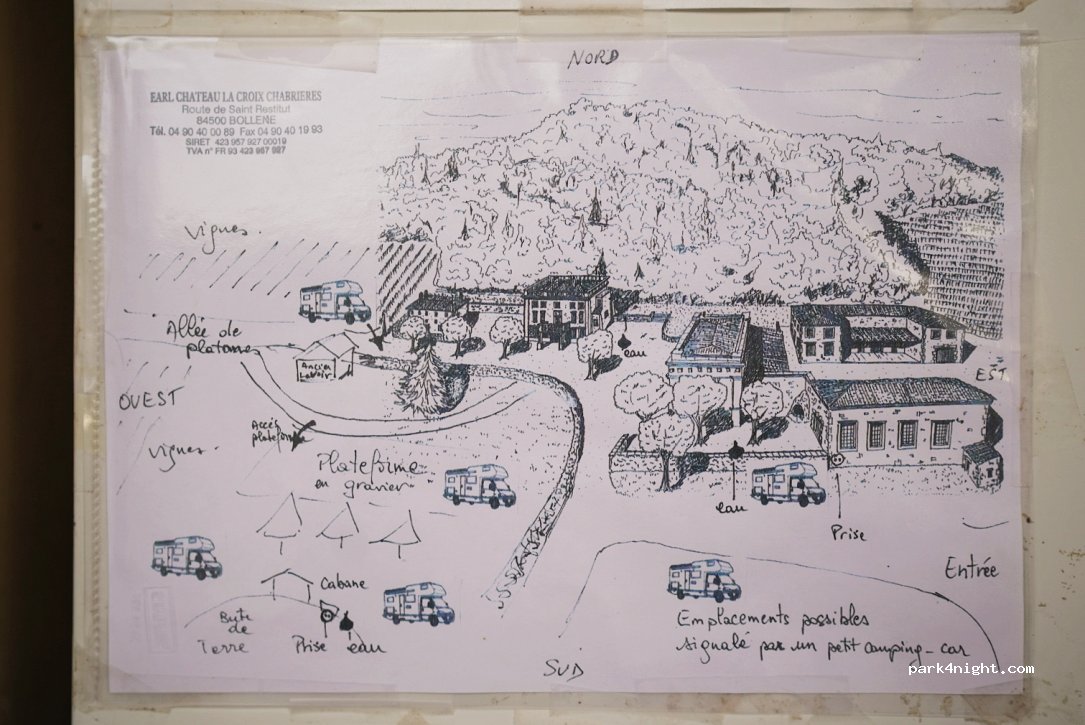 NORD
EARL CHATEAU LA CROIX CHABRIERES
Route de Saint Restitut
84500 BOLLENE
Tél. 04 90 40 00 89 Fax 04 90 40 19 93
SIRET 423 957 927 00019
TVA n° FR 93 423 957 927
Vignes.
Allée de
platanes
Ancien
Lavoir
eau
EST
OUEST
Accés
plateforme
Vignes.
Plateforme
en gravier
eau
Prise
Entrée
Cabane
Bute
de
Terre
Prise eau
Emplacements possibles
signalé par un petit camping-car
SUD
park4night.com